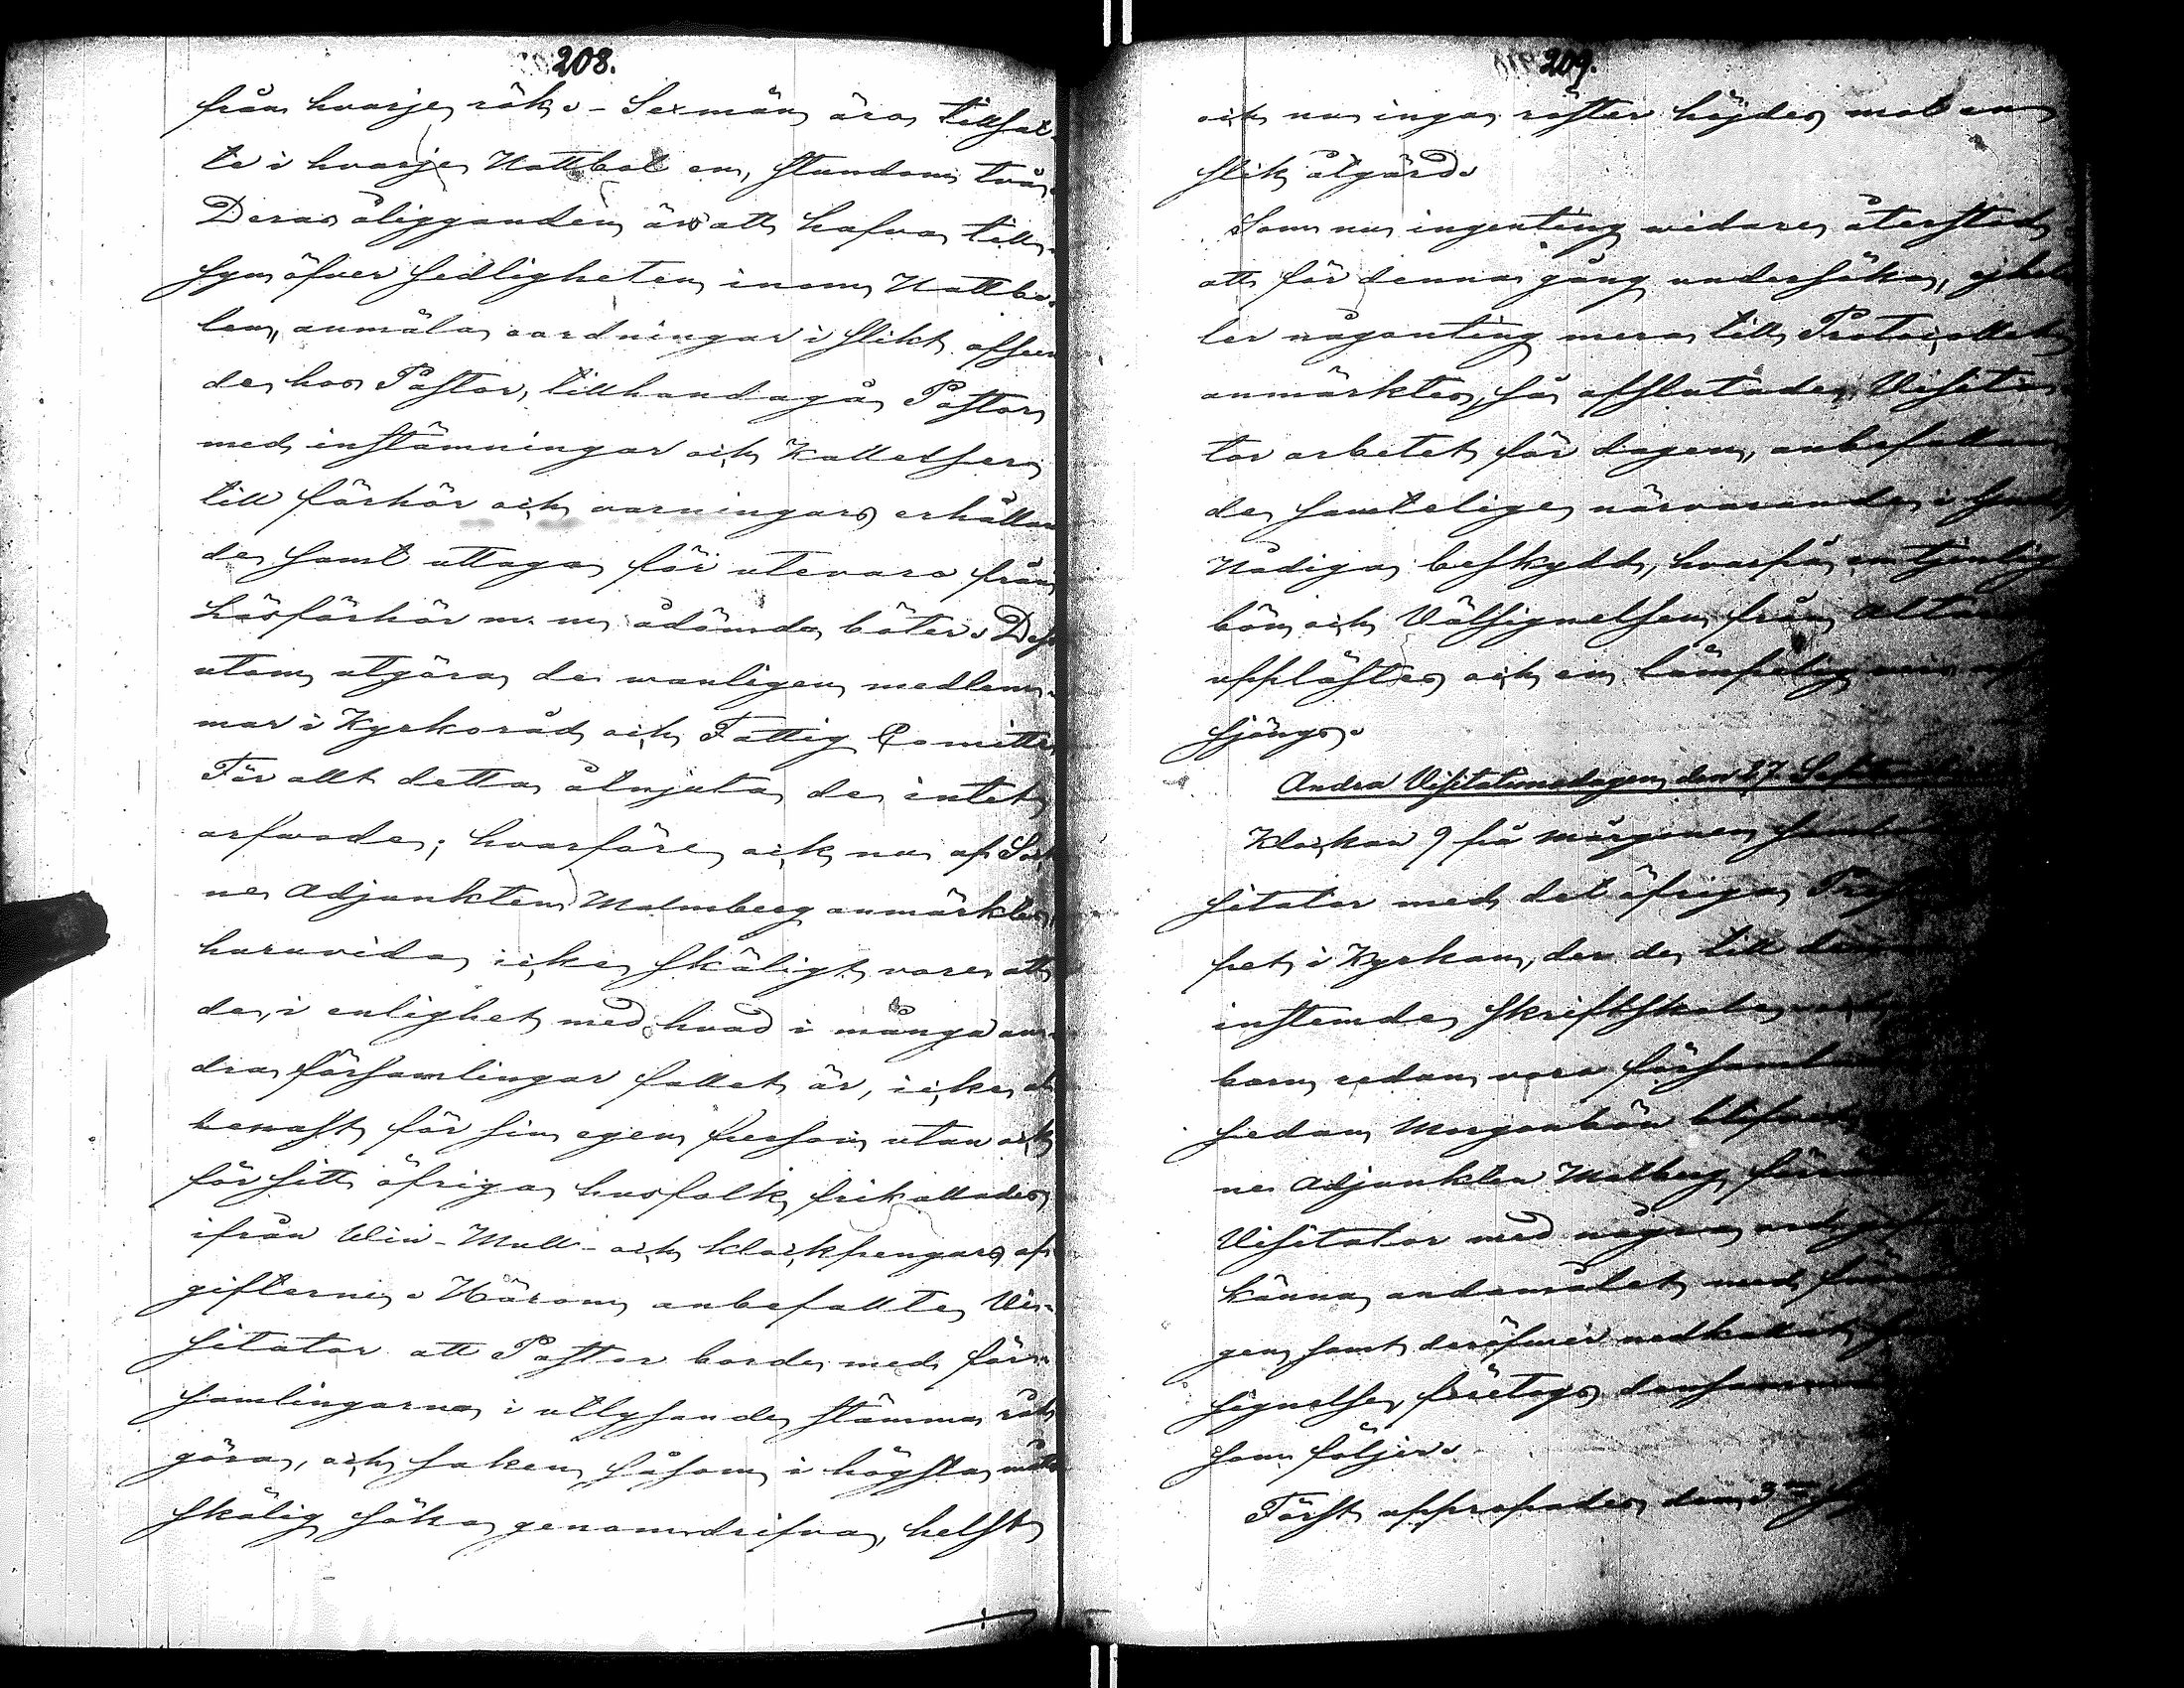 208.
från hvarje rök. - Sexmän äro tillsat-
te i hvarje Nattbol en, stundom två.
Deras åligganden äro att hafva till-
syn öfver sedligheten inom Nattbo-
len, anmäla oordningar i slikt afseen
de hos Pastor, tillhandagå Pastor
med instämningar och Kallelser
till förhör och varningars erhållan
de samt uttaga för utevaro från
Läsförhör m. m. ådömda böter. Dess
utom utgöra de vanligen medlem-
mar i Kyrkoråd och Fattig Comitten
För allt detta åtnjuta de intet
arfvode; hvarföre ock nu af Sock
ne Adjunkten Malmberg anmärktes,
huruvida icke skäligt vore att
de, i enlighet med hvad i många an-
dra församlingar fallet är, icke al
lenast för sin egen person utan ock
för sitt öfriga husfolk frikallades
ifrån Win- Mull- och klockpengars af
gifterne. Härom anbefallte Vi-
sitator att Pastor borde med för-
samlingarna i utlysande stämma råd
göra, och saken såsom i högsta måtto
skälig söka genomdrifva, helst
209.
och nu inga röster höjdes mot en
slik åtgärd.
Som nu ingenting vidare återstod
att för denna gång undersöka, ej hel
ler någonting mera till Protocollet
anmärktes, så afslutades Visita
tor arbetet för dagen, anbefallan
de samtelige närvarande i
Nådiga beskydd, hvarpå en tjenlig
bön och Välsignelsen från Altar
upplästes och en lämpelig
sjöngs.
Andra Visitationsdagen den 27 Sept
Klockan 9 på morgonen
sitator med det öfriga
pet i Kyrkan, der de till
instemde skriftskole
barn redan voro församl
sedan Morgonbön blifvit
ne Adjunkten Malberg
Visitator med några
känna andamålet med
gen samt deröfver nedkallat
signelse, företogs densamma
som följer.
Först uppropades den 3